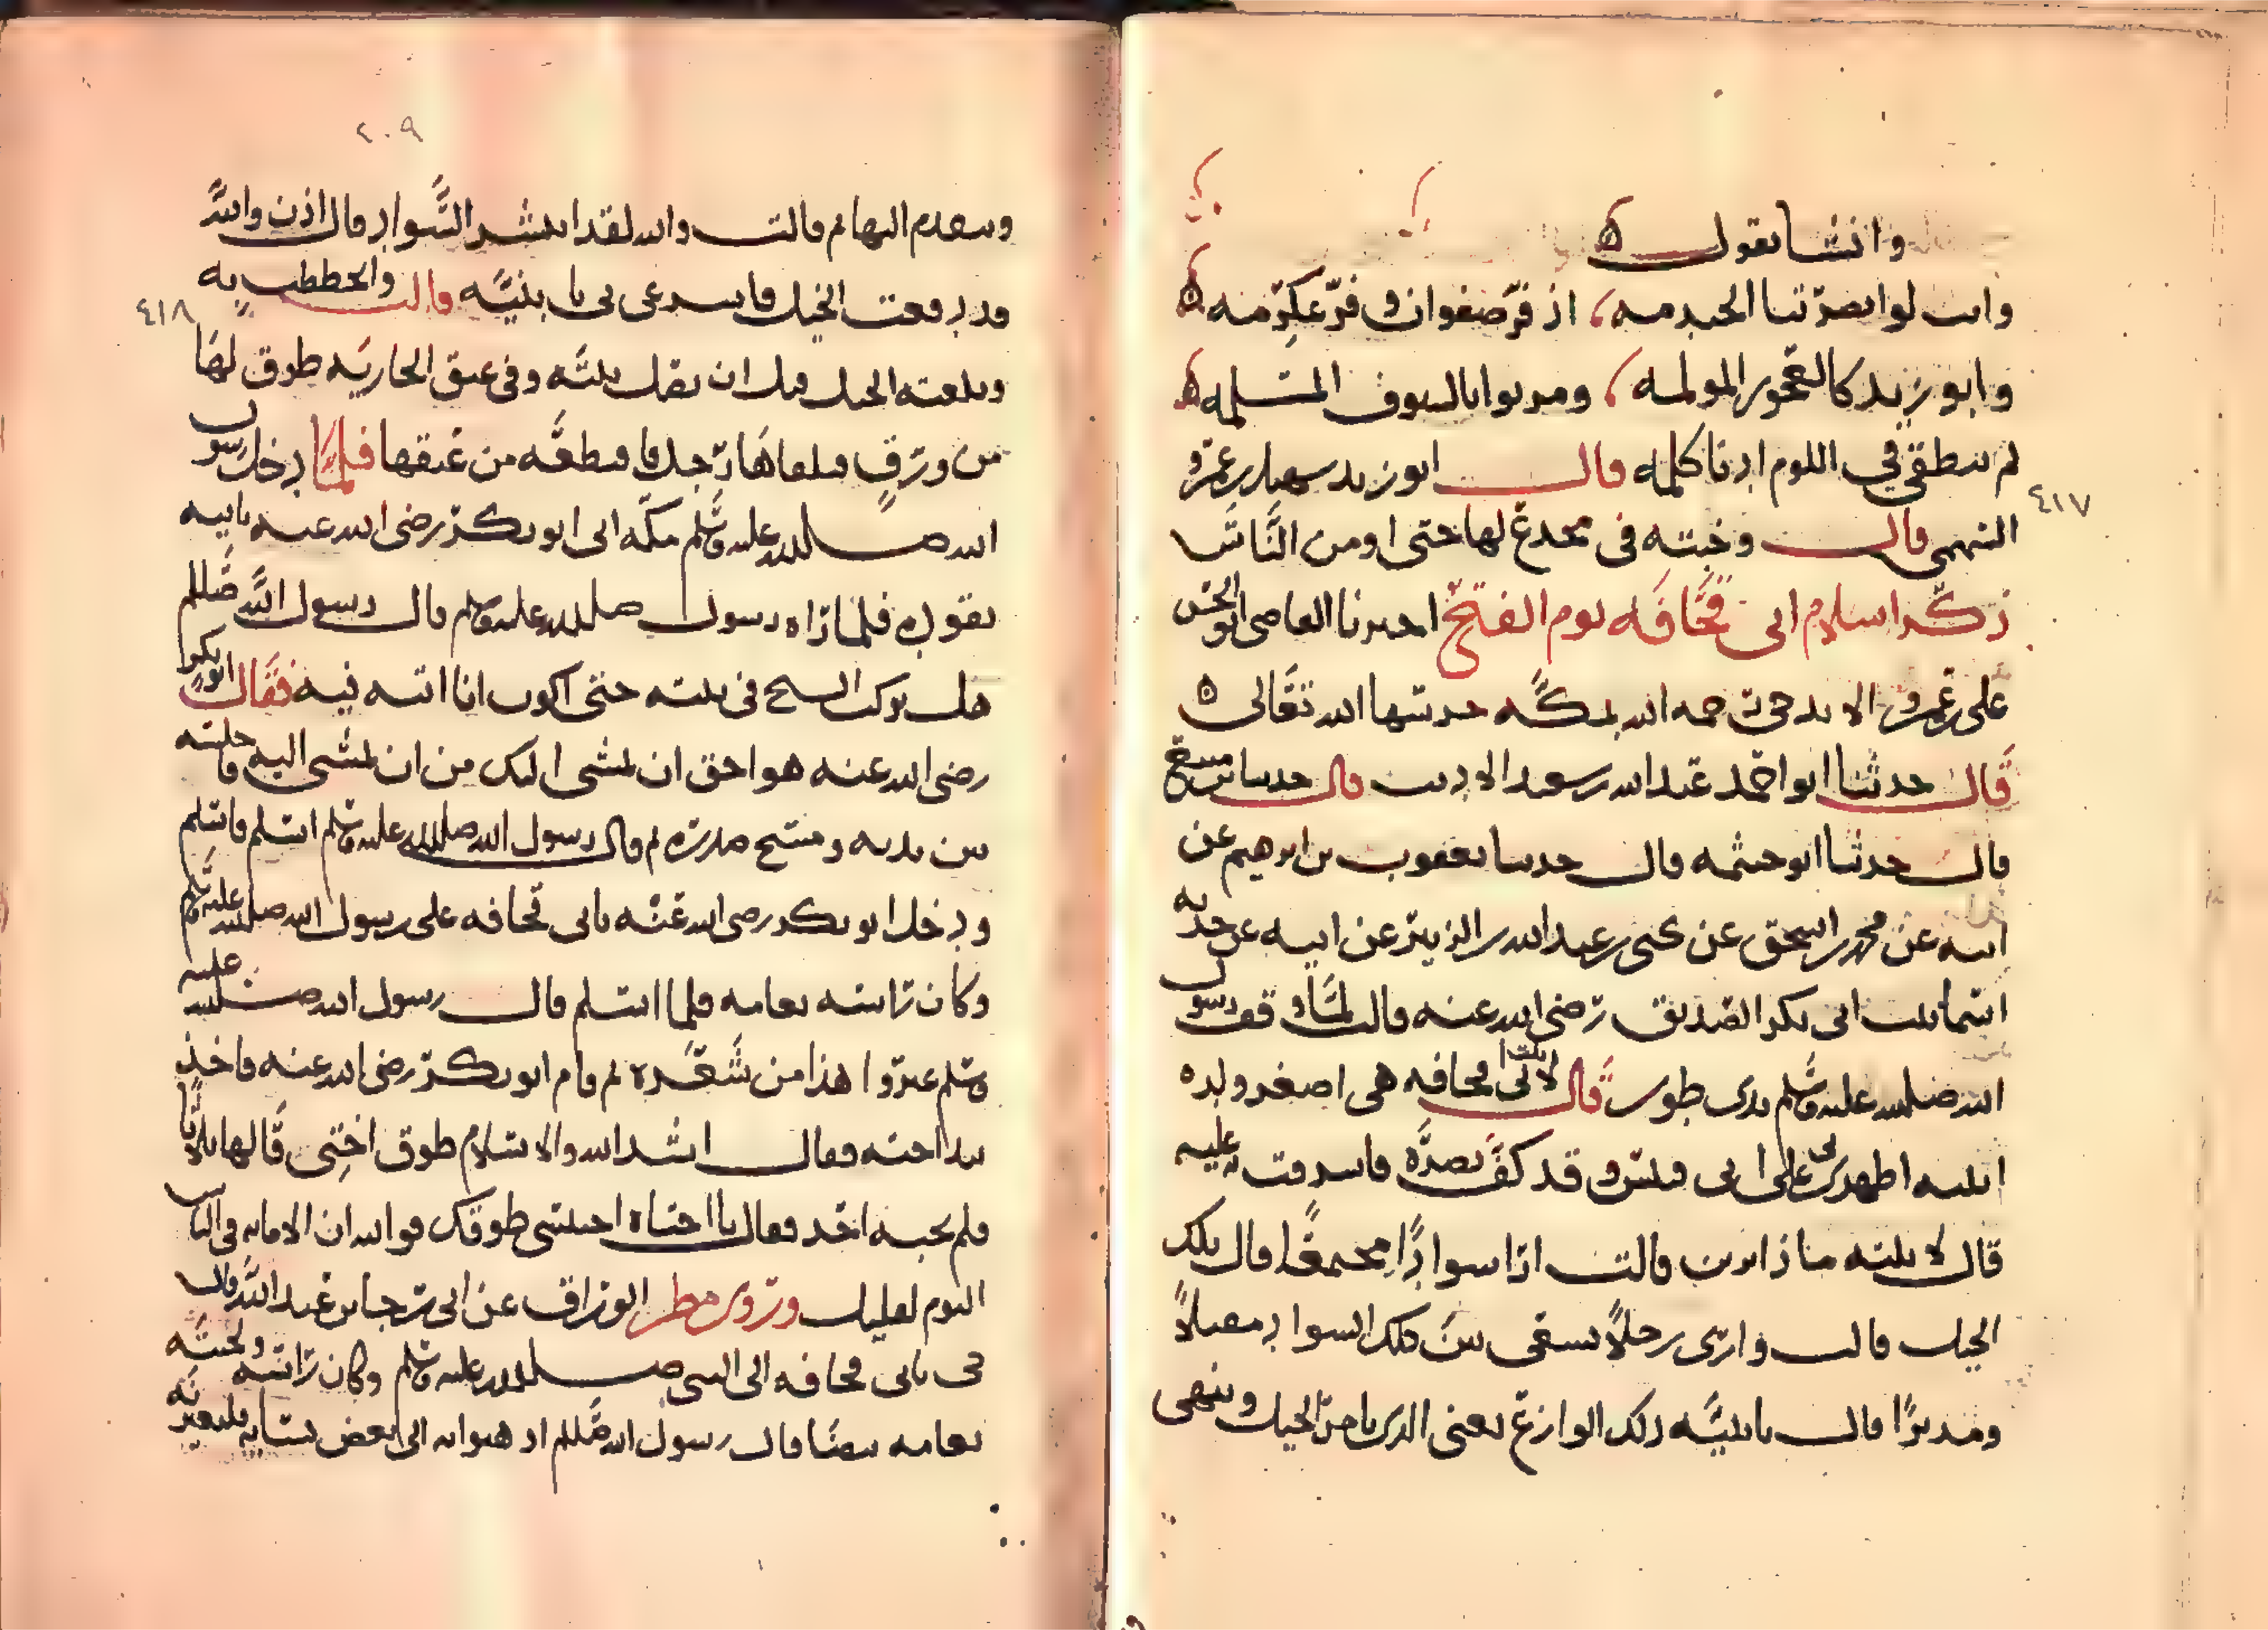 وانشا يقول
وانت لو ابصرتنا بالخندمه اذ فر صفوان وفر عكرمه
وابو يزيد كالعجوز الموتمه وضربوا بالسيوف المسلمه
لم تنطقي في اللوم ادنا كلمه قال ابو يزيد سهيل بن عمرو
السهمي قال وخبته في مخدع لها حتى اومن الناس
ذكر اسلام ابي قحافه يوم الفتح اخبرنا القاضي ابو الحسن
علي بن عمرو الا رحمه الله بمكه حرسها الله تعالى
قال حدثنا ابو احمد عبد الله بن سعيد الاديب قال حدثنا
قال حدثنا ابو خيثمه قال حدثنا يعقوب بن ابرهيم عن
ابيه عن محمد بن اسحق عن يحيى بن عبد الله بن الزبير عن ابيه عن جدته
اسما بنت ابي بكر الصديق رضي الله عنه قالت لما وقف رسول
الله صلى الله عليه وسلم بذي طوى قال لابنت ابي قحافه هي اصغر ولده
ابنيه اظهري بي على ابي قبيس وقد كف بصره فاشرفت به عليه
قال لابنته ماذا ترين قالت ارا سوادا مجتمعا قال تلك
الخيل قالت وارى رجلا يسعى بين تلك السواد مقبلا
ومدبرا قال يا بنيه ذلك الوازع يعني الذي يامر الخيل وينهى
٤١٧
٢٠٩
ويتقدم اليها ثم قالت والله لقد انتشر السواد قال اذن والله
قد دفعت الخيل فاسرعي بي يا بنيه قالت وانحططت به
٤١٨
وتلقته الخيل قبل ان يصل بيته وفي عنق الجاريه طوق لها
من ورق فلقاها رجل فاقتطعه من عنقها فلما دخل رسول
الله صلى الله عليه وسلم مكه اتى ابو بكر رضي الله عنه بابيه
يقوده فلما راه رسول صلى الله عليه وسلم قال رسول الله صللم
هل تركت الشيخ في بيته حتى اكون انا اتيه فيه فقال ابو بكر
رضي الله عنه هو احق ان يمشي اليك من ان تمشي اليه فاجلسه
بين يديه ومسح صدره ثم قال رسول الله صلى الله عليه وسلم اسلم فاسلم
ودخل ابو بكر رضي الله عنه بابي قحافه على رسول الله صلى الله عليه وسلم
وكان راسه ثغامه فلما اسلم قال رسول الله صلى الله عليه
وسلم غيروا هذا من شعره ثم قام ابو بكر رضي الله عنه فاخذ
بيد اخته فقال انشد الله والاسلام طوق اختي قالها ثلاثا
فلم يجبه احد فقال يا اختاه احتسبي طوقك فوالله ان الامانه في الناس
اليوم لقليل وروى مطر الوراق عن ابي رجا عن عبد الله قال
جي بابي قحافه الى النبي صلى الله عليه وسلم وكان راسه ولحيته
ثغامه بيضا فقال رسول الله صللم اذهبوا به الى بعض نسايه فليغيرنه